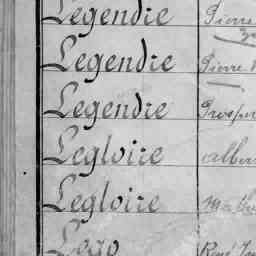 Legendre Pierre
Legendre Pierre
Legendre Prosper
Legloire Alber
Legloire
Lego René